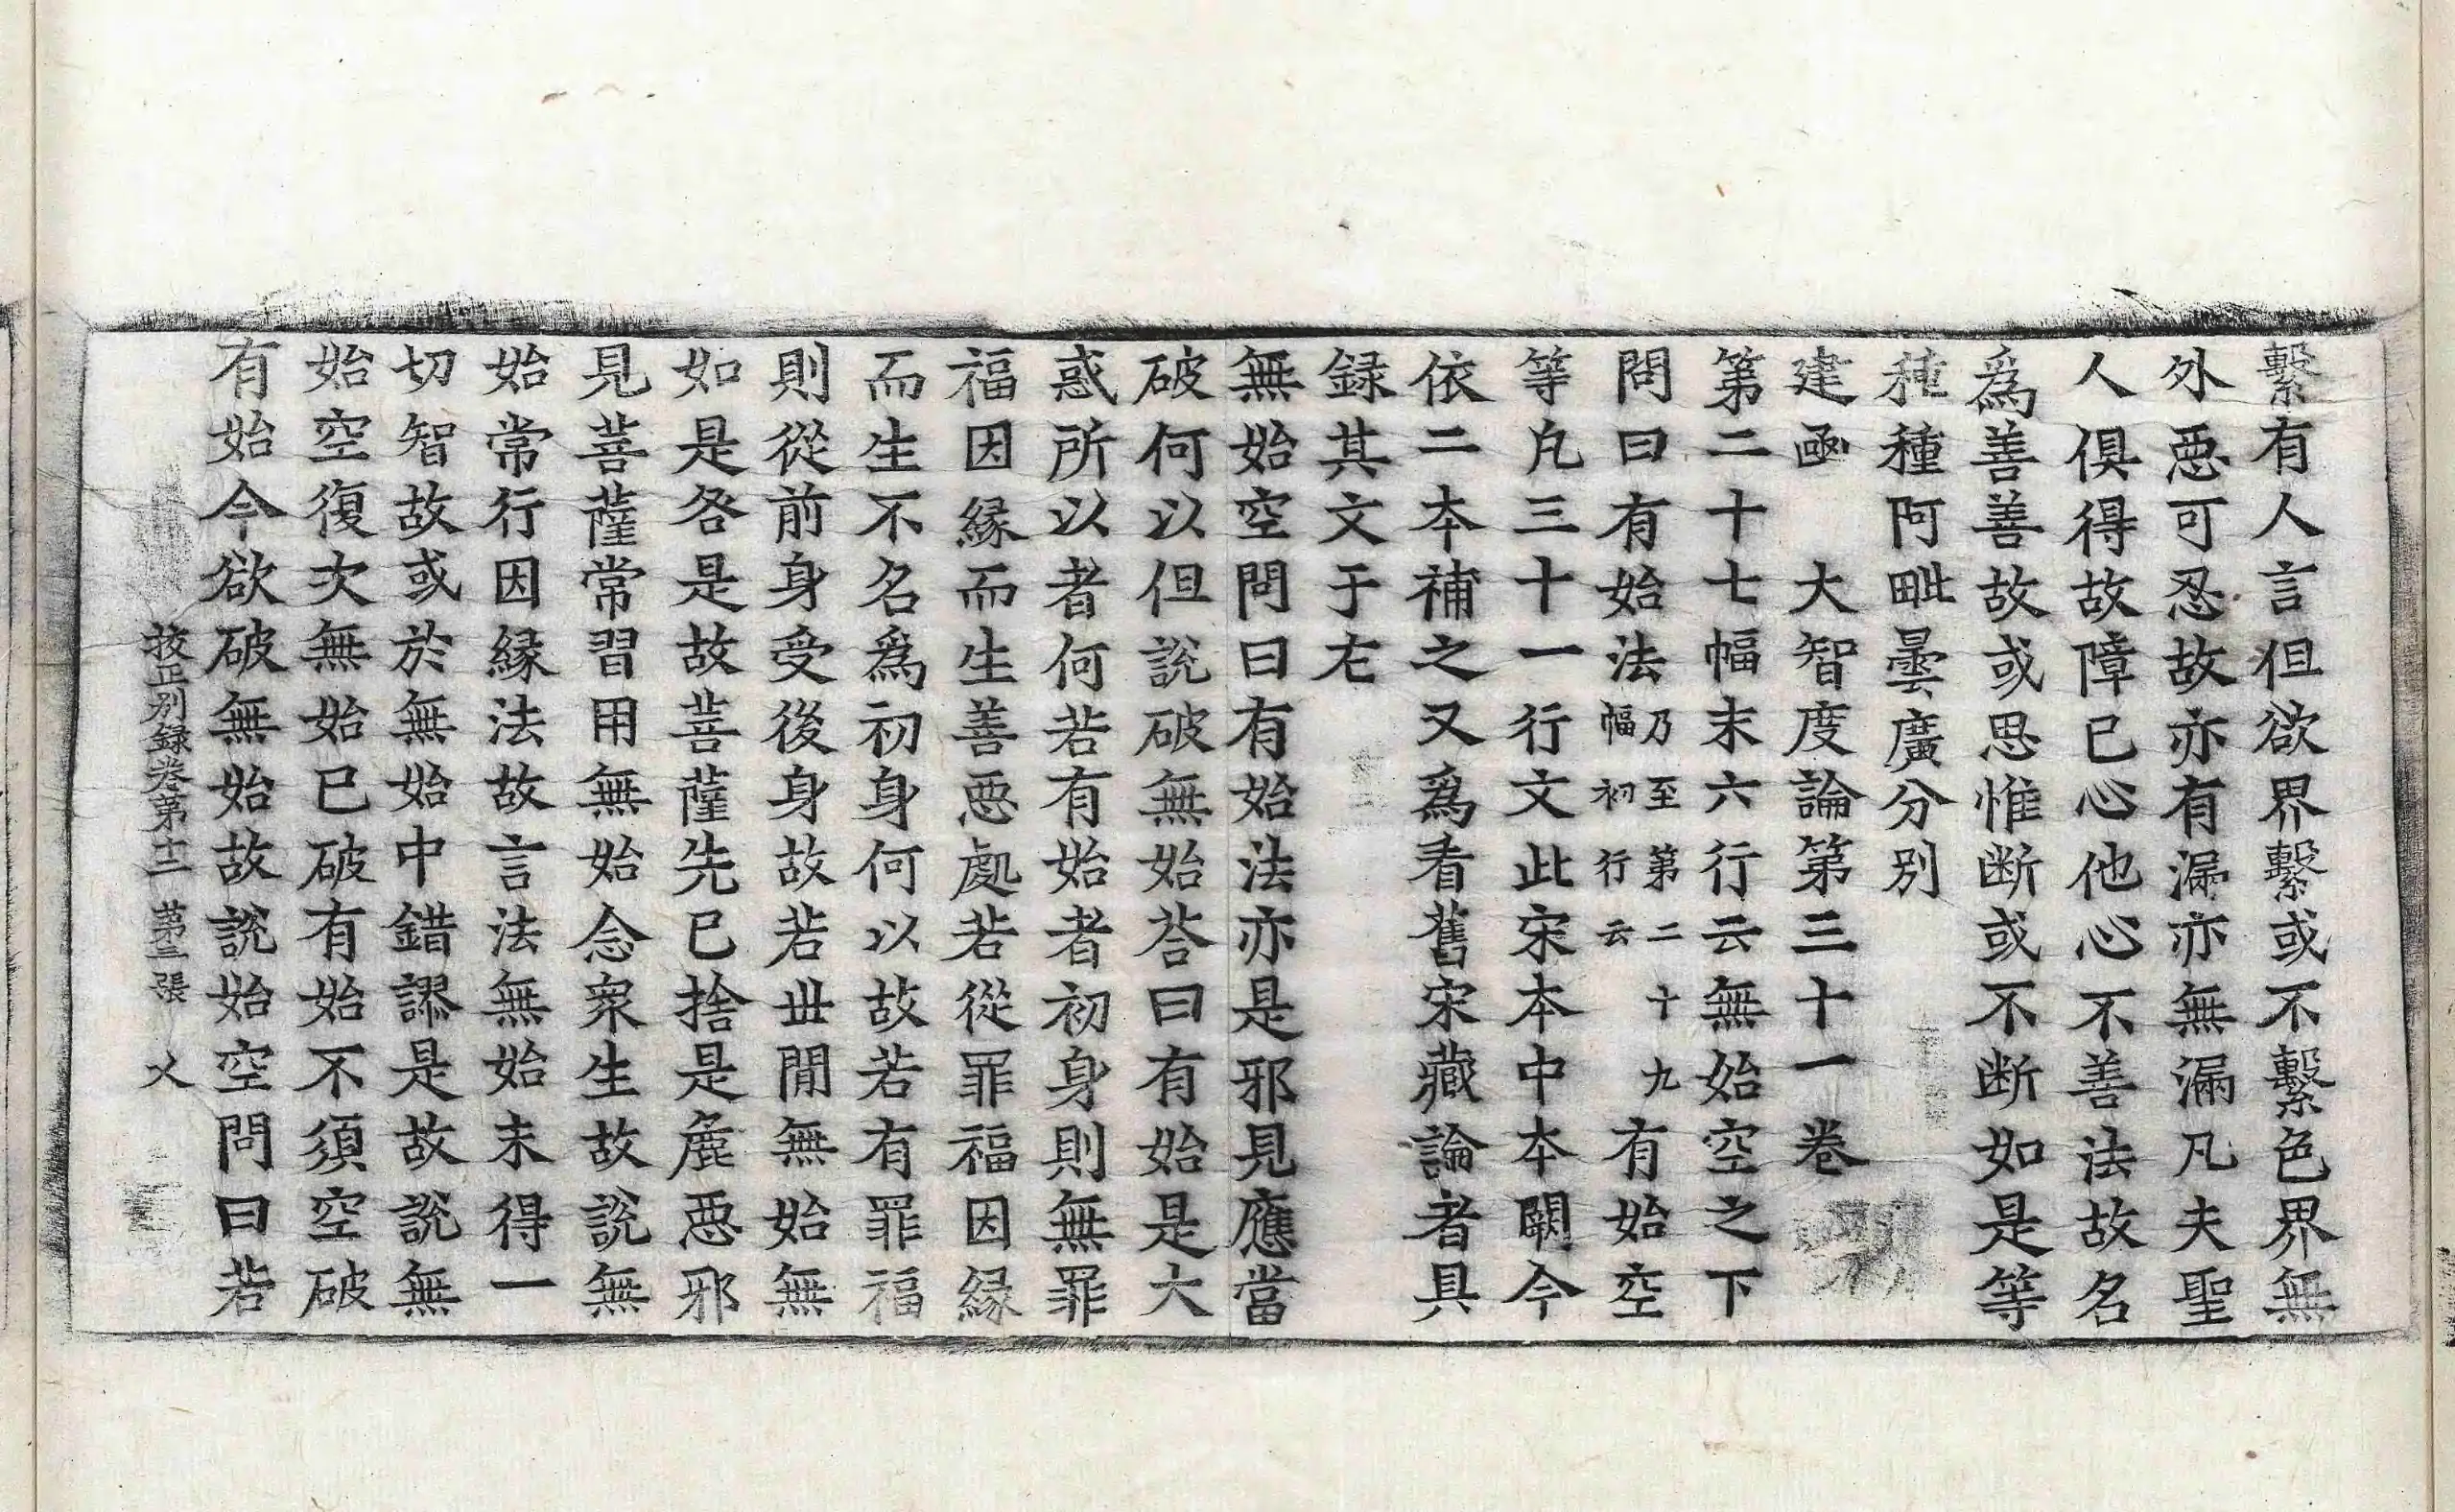 繫有人言但欲界繫或不繫色界無
外惡可忍故亦有漏亦無漏凡夫聖
人俱得故障已心他心不善法故名
爲善善故或思惟断或不断如是等
種種阿毗曇廣分別
建函　大智度論第三十一卷
第二十七幅末六行云無始空之下
問曰有始法乃至第二十九幅初行云有始空
等凡三十一行文此宋本中本闕今
依二本補之又爲看舊宋藏論者具
録其文于左
無始空問曰有始法亦是邪見應當
破何以但說破無始荅曰有始是大
惑所以者何若有始者初身則無罪
福因緣而生善惡處若從罪福因緣
而生不名爲初身何以故若有罪福
則從前身受後身故若丗閒無始無
如是咎是故菩薩先已捨是麁惡邪
見菩薩常習用無始念衆生故說無
始常行因緣法故言法無始未得一
切智故或於無始中錯謬是故說無
始空復次無始已破有始不須空破
有始今欲破無始故說始空問曰若
挍正別録卷第十二　第三張　乂